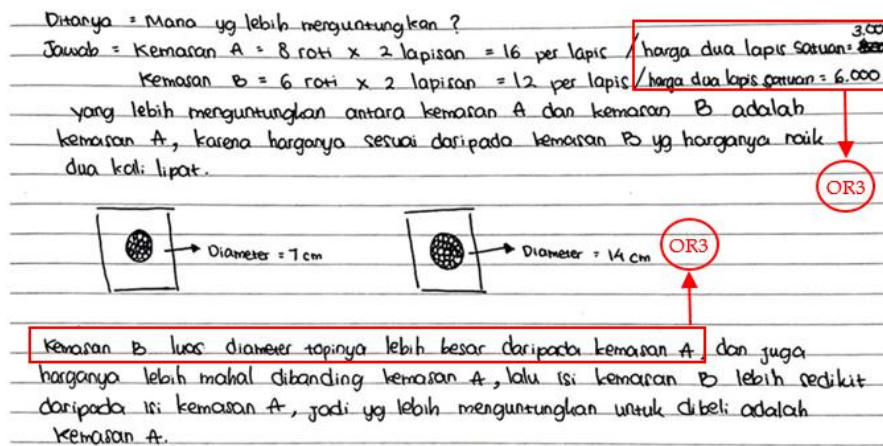 Ditanya = Mana yg lebih menguntungkan ?
Jawab = Kemasan A = 8 roti x 2 lapisan = 16 per lapis / harga dua lapis satuan = 3.00
Kemasan B = 6 roti x 2 lapisan = 12 per lapis / harga dua lapis satuan = 6.000
yang lebih menguntungkan antara kemasan A dan kemasan B adalah
kemasan A, karena harganya sesuai daripada kemasan B yg harganya naik
dua kali lipat.
OR3
Diameter = 7 cm
Diameter = 14 cm
OR3
Kemasan B luas diameter topinya lebih besar daripada kemasan A, dan juga
harganya lebih mahal dibanding kemasan A, lalu isi kemasan B lebih sedikit
daripada isi kemasan A, jadi yg lebih menguntungkan untuk dibeli adalah
kemasan A.